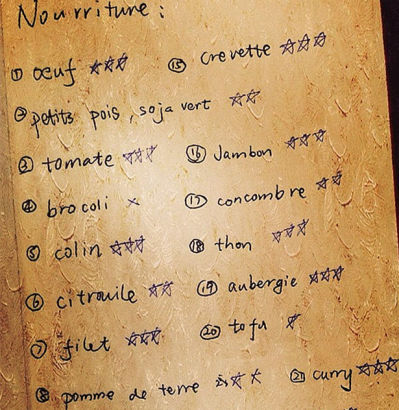 Nourriture :
① œuf ☆☆☆
② petits pois, soja vert ☆☆
③ tomate ☆☆☆
④ brocoli ×
⑤ colin ☆☆☆
⑥ citrouile ☆☆
⑦ filet ☆☆☆
⑧ pomme de terre ☆☆☆
⑮ crevette ☆☆☆
⑯ Jambon ☆☆☆
⑰ concombre ☆☆
⑱ thon ☆☆☆
⑲ aubergie ☆☆☆
⑳ tofu ☆
㉑ curry ☆☆☆